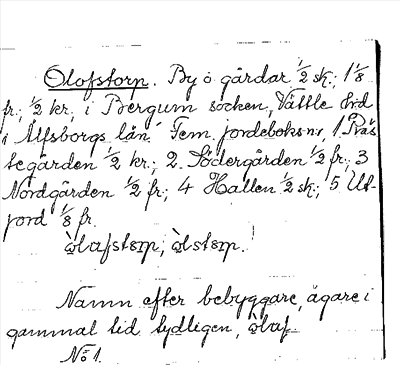 Olofstorp. By o gårdar 1/2 sk; 1 1/8
fr; 1/2 kr, i Bergum socken, Vättle hrd
i Älfsborgs län. Fem jordeboksnr, 1 Präs
tegården 1/2 kr; 2. Södergården 1/2 fr; 3
Nordgården 1/2 fr; 4 Hallen 1/2 sk; 5 Ut-
jord 1/8 fr.
Namn efter bebyggare, ägare i
gammal tid tydligen,
No 1.